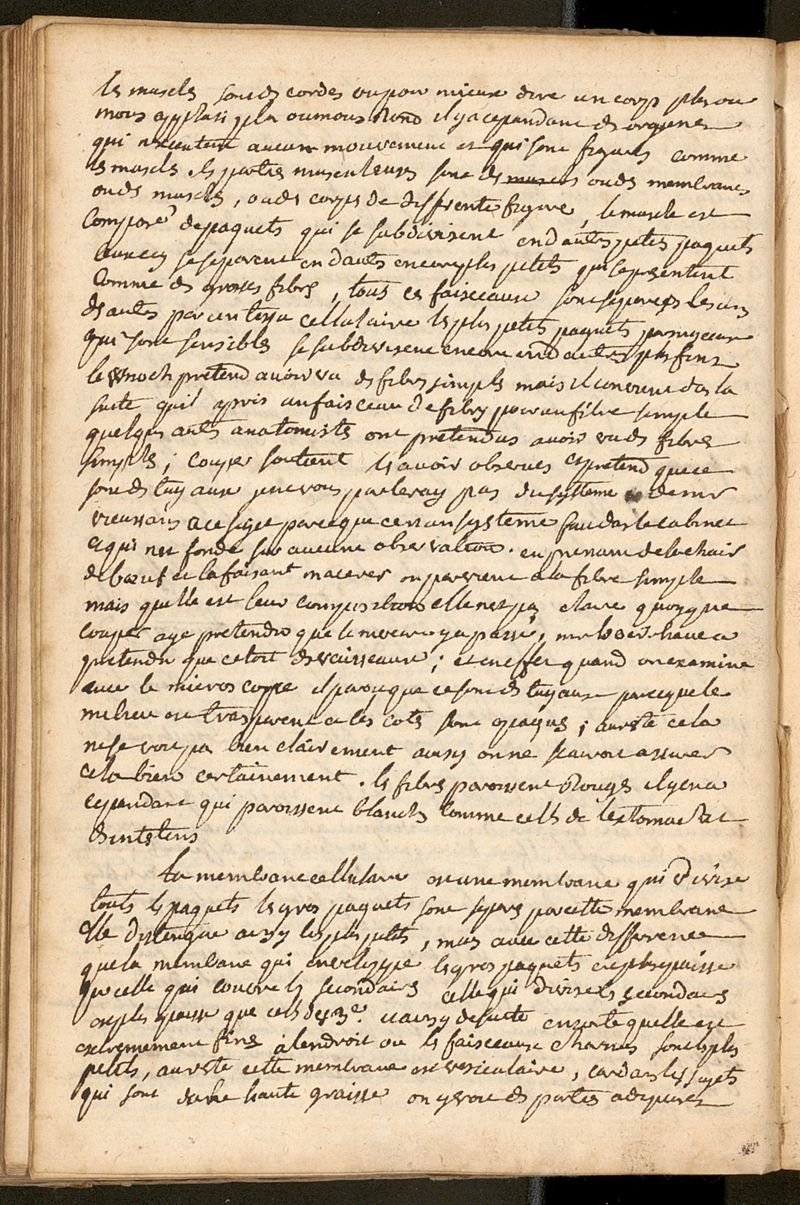 les muscles sont des cordes ou pour mieux dire un corps plus ou
mous applati plus ou mous rond il y a cependant des organes
qui n'executent aucun mouvement et qui sont figurés comme
les muscles les parties musculeuses sont des muscles ou des membranes
ou des muscles, ou des corps de differente figure, le muscle est
Composé de paquets qui se subdivisent en d'autres petits paquets
ceux cy se separent en dautres encore plus petits qui se presentent
Comme des grosses fibres, tous ces faisceaux sont separés les uns
des autres par un tissu cellulaire les plus petits paquets
qui sont sensibles se subdivisent encore en d'autres plus fins
le pretend avoir vu des fibres simples mais il convient dans la
suite quil a pris un faisceau de fibres pour un fibre simple
quelques autres anatomistes ont pretendus avoir vu des fibres
simples; Couper soutient les avoir observés et pretend que ce
sont des tuyaux je ne vous parleray pas du systeme de mr
vieussans a ce sujet parceque c'est un systeme fait dans le cabinet
et qui n'est fondé sur aucune observation. en prenant de la chair
de boeuf et la faisant macerer on parvient a la fibre simple
mais quelle est leur composition elle n'est pas claire quoyque
couper aye pretendu que le mercure y a passé, mr boerhaave a
pretendu que cetoit des vaisseaux; et en effet quand on examine
avec le microscope il paroit que ce sont des tuyaux parceque le
milieu est trasparent et les cotés sont opaques; au reste cela
ne se voit pas bien clairement aussy on ne scauroit assurer
cela bien certainement. les fibres paroissent rouges il y en a
cependant qui paroissent blanches comme celles de lestomac et
des intestins
La membrane cellulaire est une membrane qui divise
touts les paquets les gros paquets sont separés par cette membrane
elle distingue aussy les plus petits, mais avec cette difference
que la membrane qui enveloppe les gros paquets est plus epaisse
que celle qui couvre les secondaires celle qui divise les secondaires
est plus epaisse que celle des 3es. et ainsy de suite en sorte quelle est
extremement fine a l'endroit ou les faisceaux charnus sont les plus
petits, au reste cette membrane est vesiculaire, car dans les sujets
qui sont de haute graisse on y voit des parties adipeuses